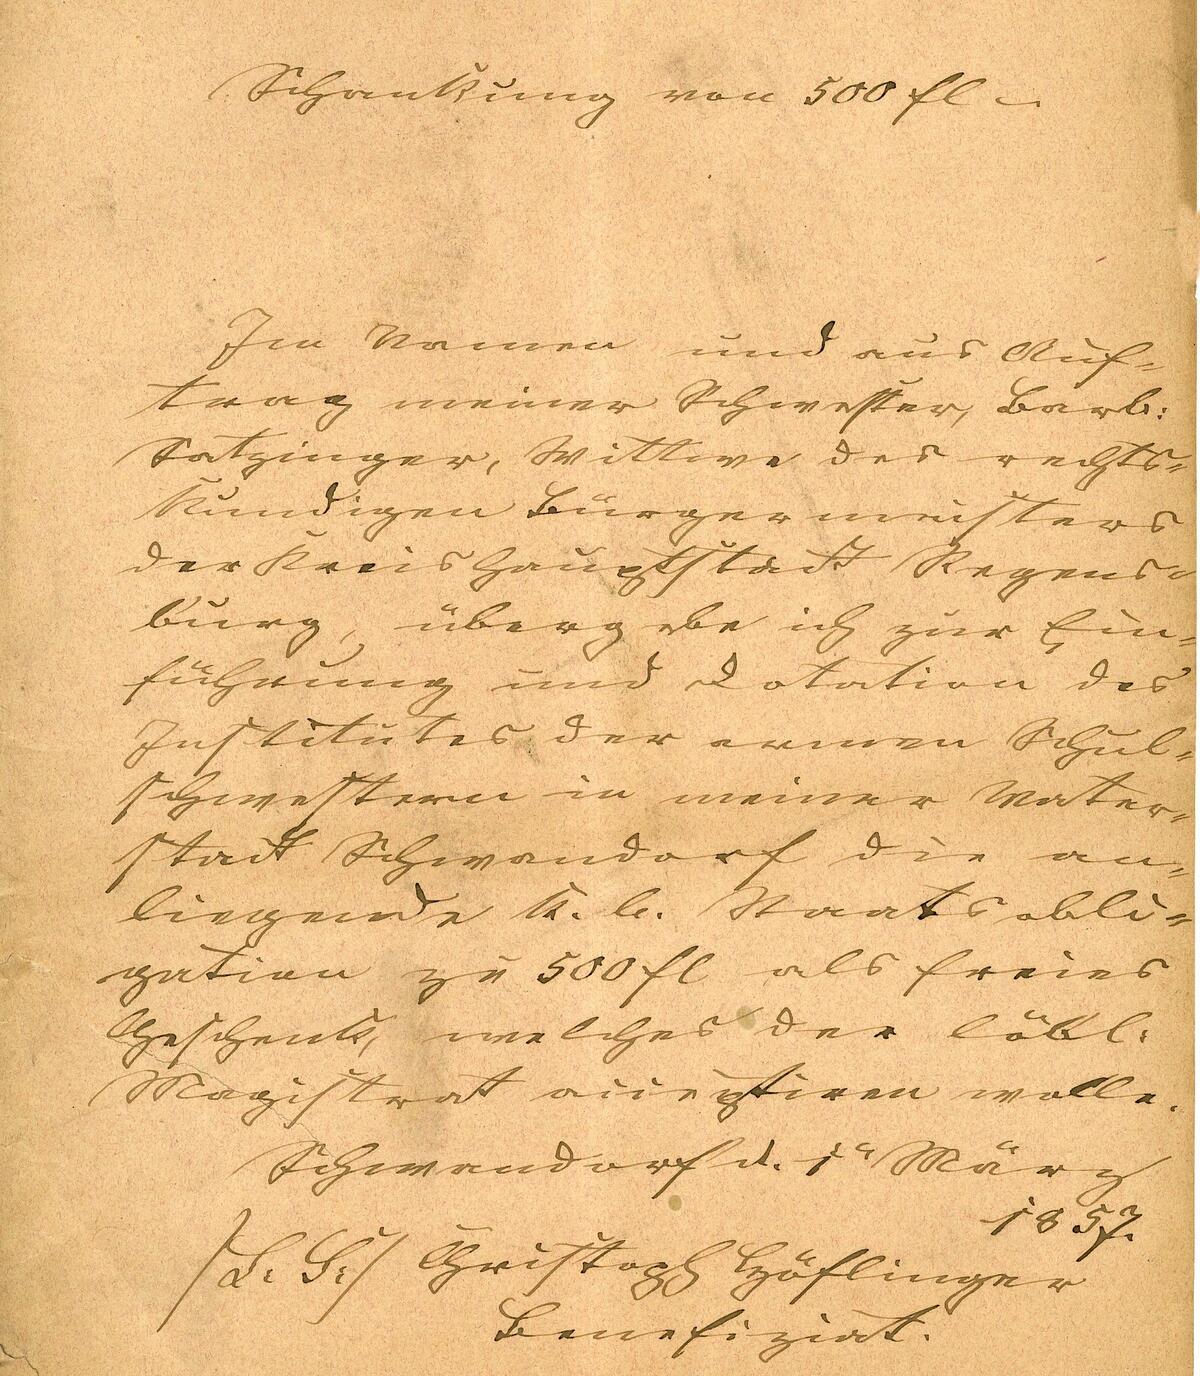 Schankung von 500 fl –
Im Namen und aus Auf-
trag meiner Schwester, Barb:
Satzinger, Wittwe des rechts-
kundigen Bürgermeisters
der Kreishauptstadt Regens-
burg, übergebe ich zur Ein-
führung und Dotation des
Institutes der armen Schul-
schwestern in meiner Vater-
stadt Schwandorf die an-
liegende K. b. Staatsobli-
gation zu 500 fl als freies
Geschenk, welches der löbl:
Magistrat acceptiren wolle.
Schwandorf d. 1ten März
1857.
/L. S:/ Christoph Höflinger
Benefiziat.